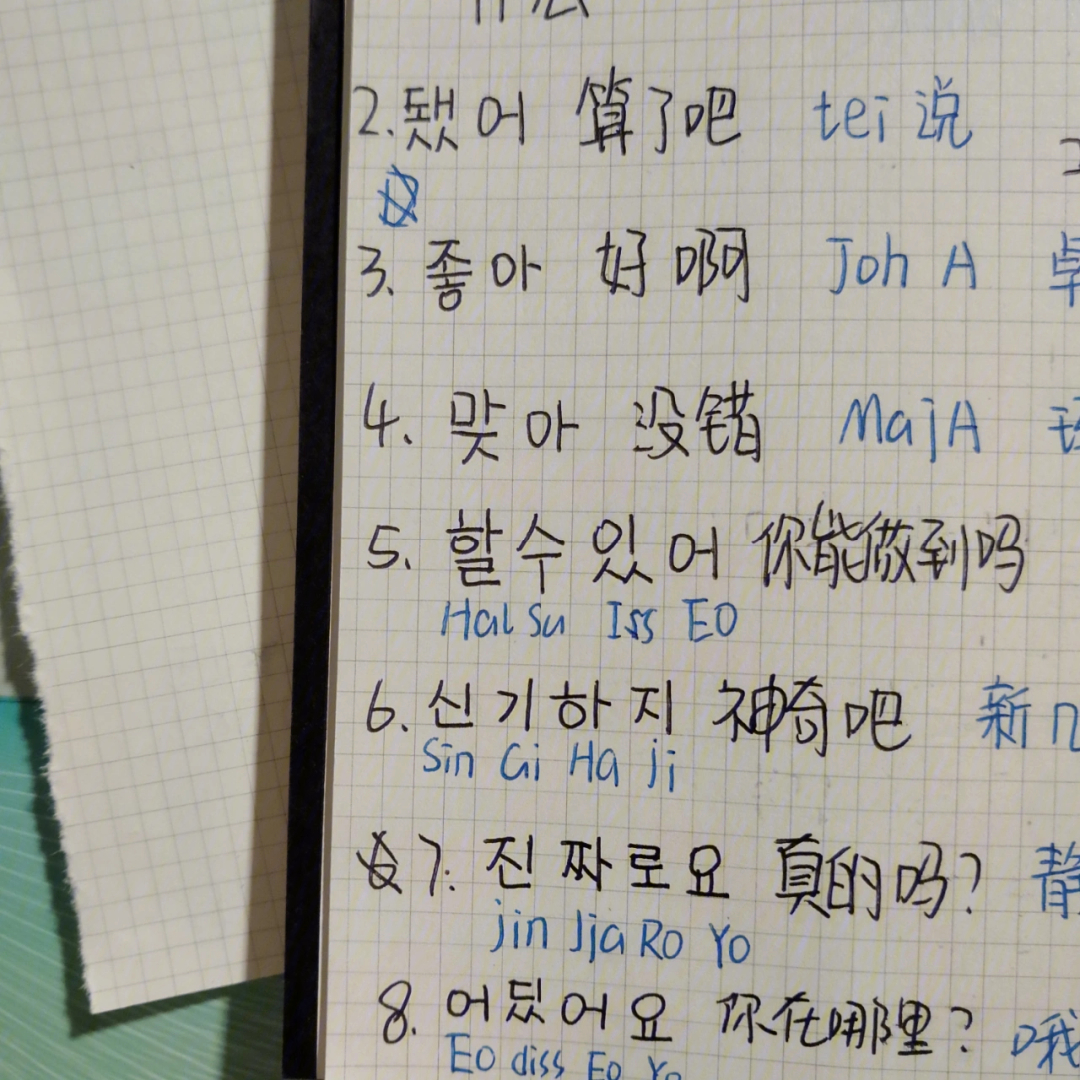 什么
2. 됐어 算了吧 tei 说
3. 좋아 好啊 Joh A 卓
4. 맞아 没错 MajA
5. 할수있어 你能做到吗
Hal Su Iss EO
6. 신기하지 神奇吧 新几
Sin Gi Ha ji
7. 진짜로요 真的吗? 静
jin Jja Ro Yo
8. 어딨어요 你在哪里? 哦
Eo diss Eo Yo